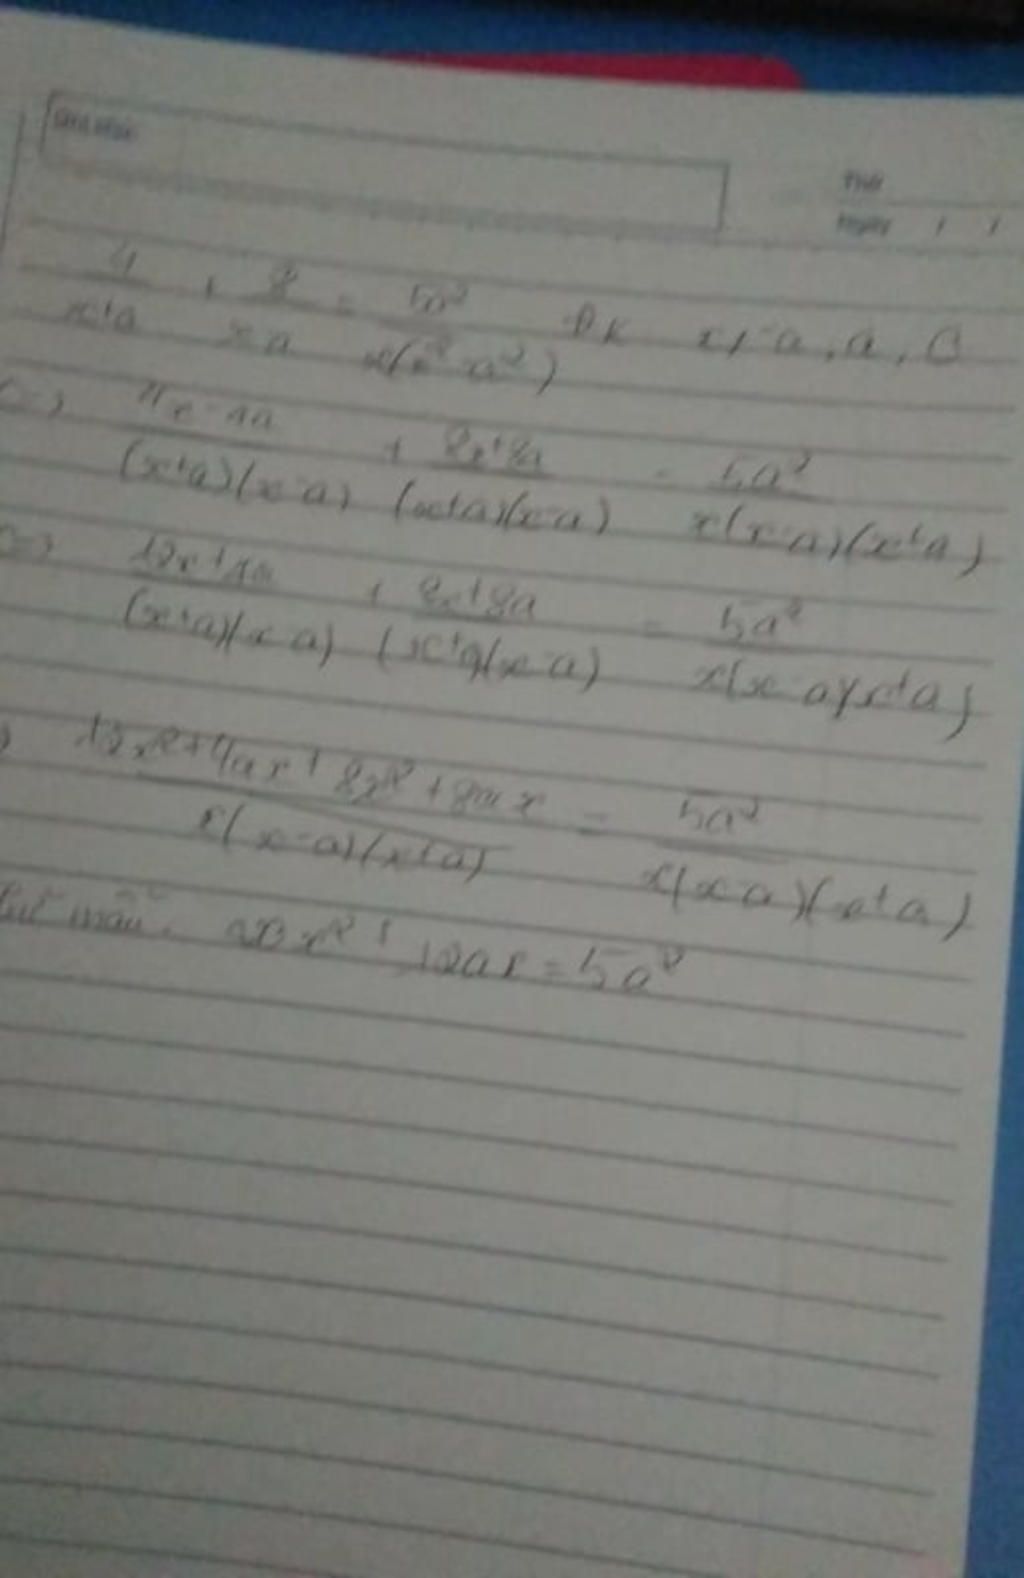 Thứ
Ngày / /
4/(x+a) + 8/(x-a) = 5a²/(x(x²-a²)) ĐK x ≠ -a, a, 0
<=> (4x-4a)/((x+a)(x-a)) + (8x+8a)/((x+a)(x-a)) = 5a²/(x(x-a)(x+a))
<=> (12x+4a)/((x+a)(x-a)) + (8x+8a)/((x+a)(x-a)) = 5a²/(x(x-a)(x+a))
(12x²+4ax+8x²+8ax)/(x(x-a)(x+a)) = 5a²/(x(x-a)(x+a))
mẫu: 20x² + 12ax = 5a²